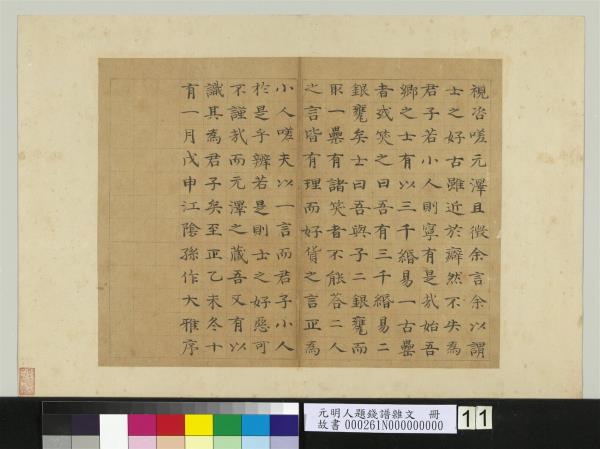 視咨嗟元澤且徵余言余以謂
士之好古雖近於癖然不失為
君子若小人則寧有是哉始吾
鄉之士有以三千緡易一古罍
者或笑之曰吾有三千緡易二
銀甕矣士曰吾與子二銀甕而
取一罍有諸笑者不能答二人
之言皆有理而好貨之言正為
小人嗟夫以一言而君子小人
於是乎辨若是則士之好惡可
不謹哉而元澤之藏吾又有以
識其為君子矣至正乙未冬十
有一月戊申江陰孫作大雅序
元明人題錢譜雜文 冊
故書 000261N000000000
11